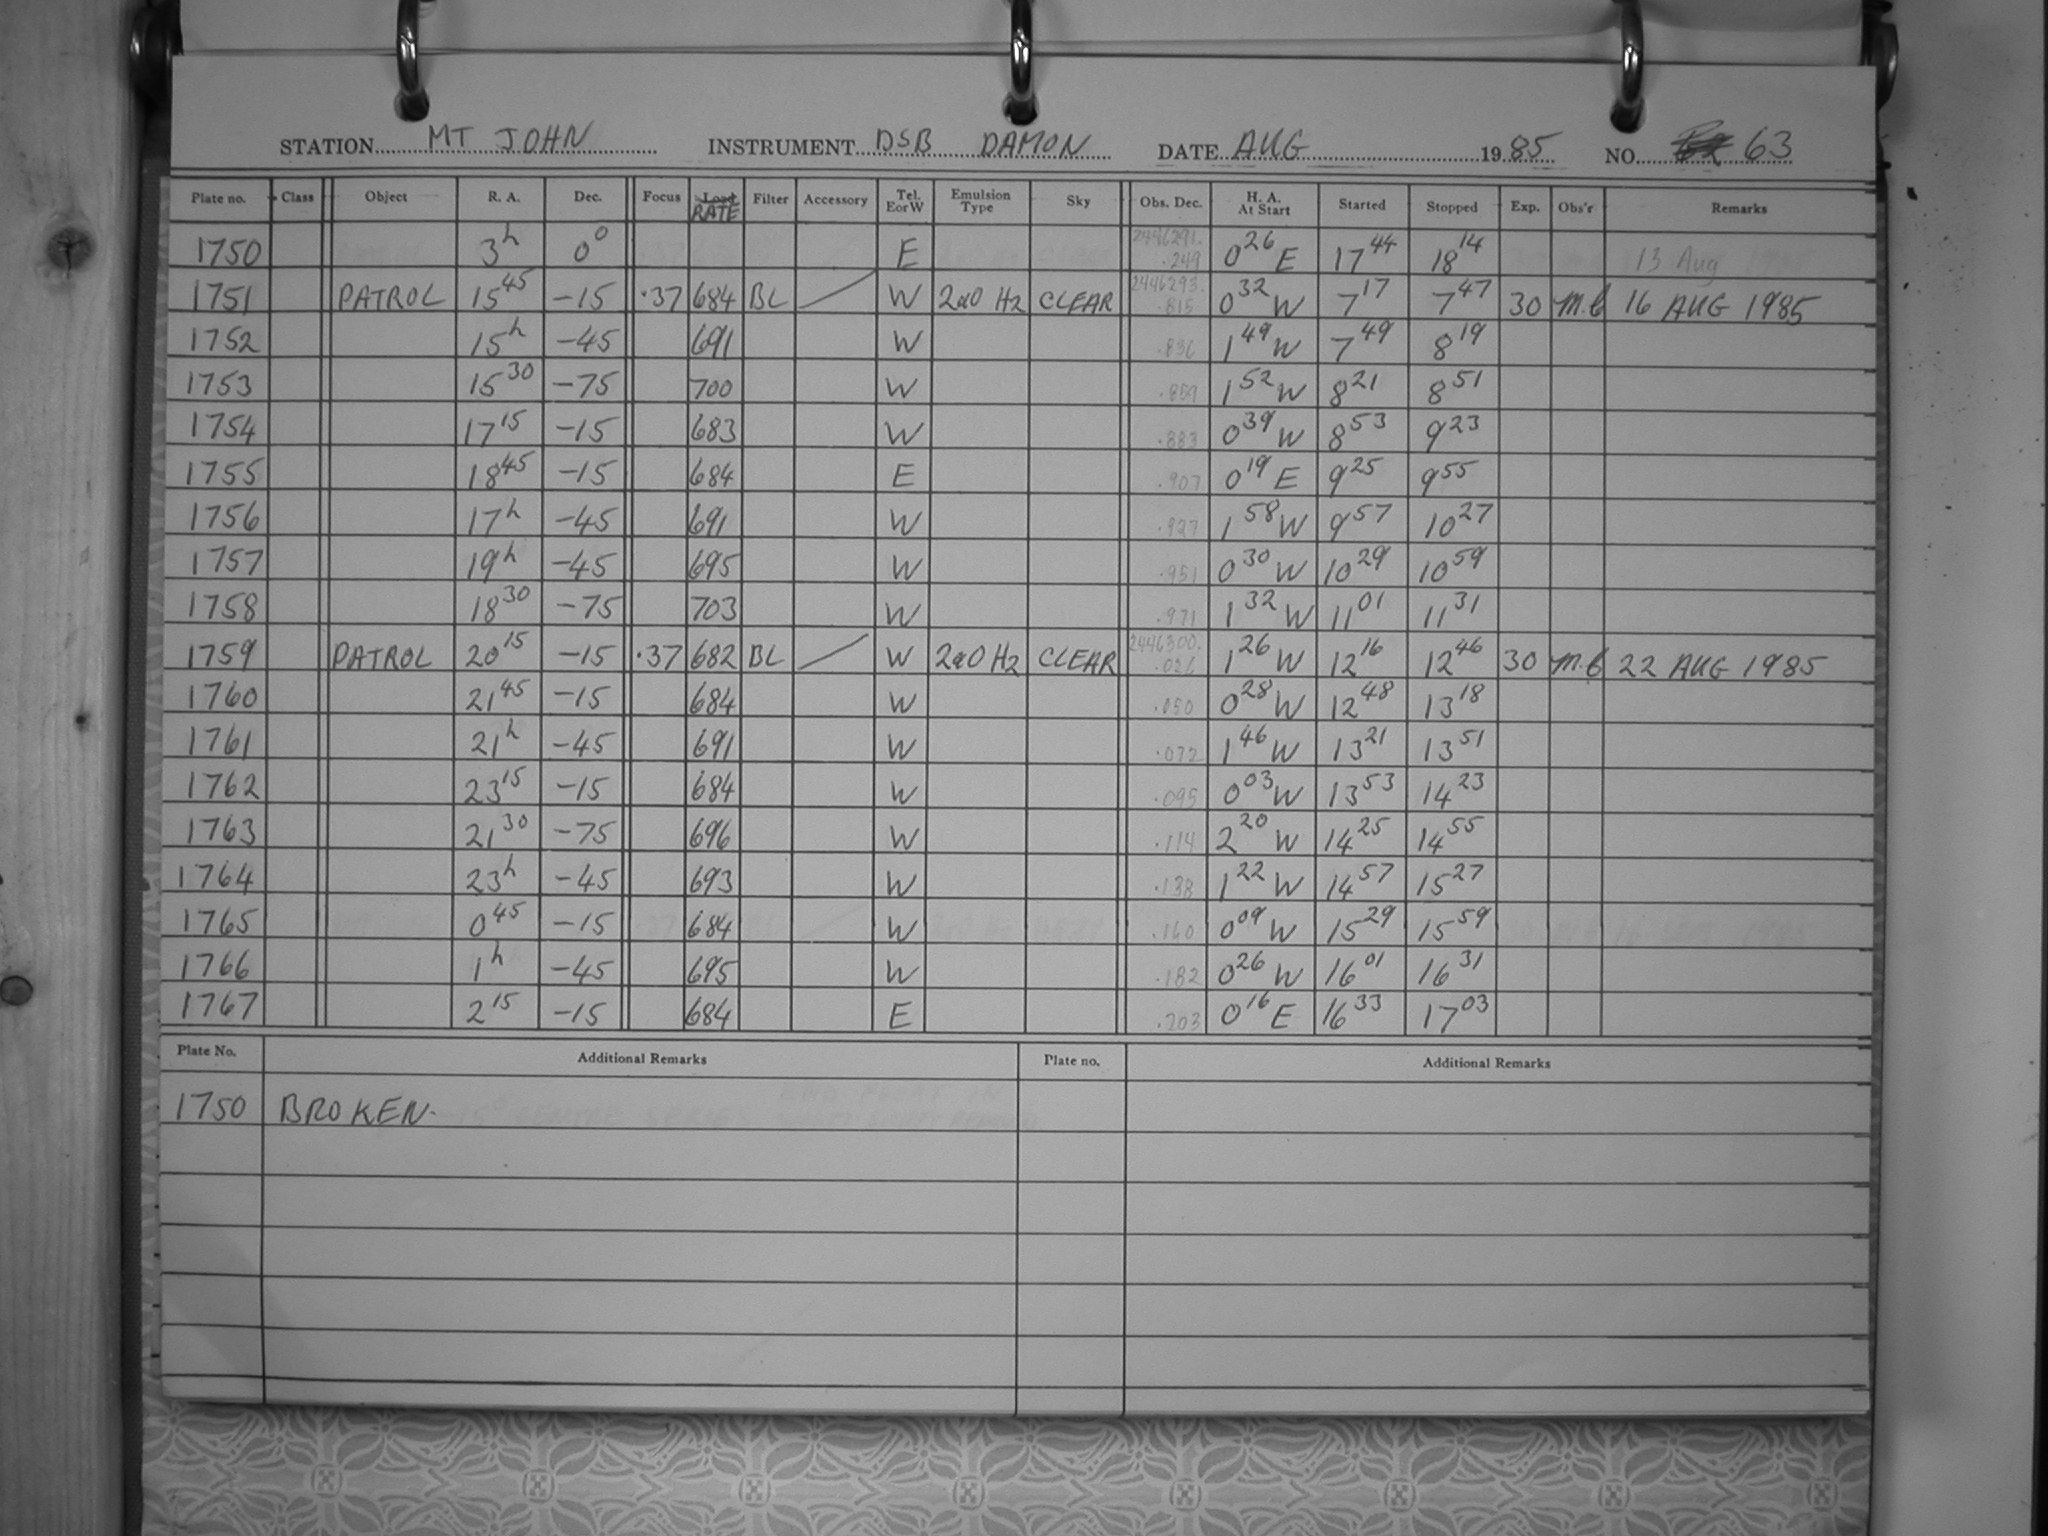 STATION MT JOHN INSTRUMENT DSB DAMON DATE AUG 1985 NO. 63
Plate no. Class Object R. A. Dec. Focus RATE Filter Accessory Tel. E or W Emulsion Type Sky Obs. Dec. H. A. At Start Started Stopped Exp. Obs'r Remarks
1750 3h 0° E 2446291. .249 0 26 E 17 44 18 14 13 Aug
1751 PATROL 15 45 -15 .37 684 BL W 2aO H2 CLEAR 2446293. .815 0 32 W 7 17 7 47 30 16 AUG 1985
1752 15h -45 691 W .836 1 49 W 7 49 8 19
1753 15 30 -75 700 W .859 1 52 W 8 21 8 51
1754 17 15 -15 683 W .883 0 39 W 8 53 9 23
1755 18 45 -15 684 E .907 0 19 E 9 25 9 55
1756 17h -45 691 W .927 1 58 W 9 57 10 27
1757 19h -45 695 W .951 0 30 W 10 29 10 59
1758 18 30 -75 703 W .971 1 32 W 11 01 11 31
1759 PATROL 20 15 -15 .37 682 BL W 2aO H2 CLEAR 2446300. .026 1 26 W 12 16 12 46 30 22 AUG 1985
1760 21 45 -15 684 W .050 0 28 W 12 48 13 18
1761 21h -45 691 W .072 1 46 W 13 21 13 51
1762 23 15 -15 684 W .095 0 03 W 13 53 14 23
1763 21 30 -75 696 W .114 2 20 W 14 25 14 55
1764 23h -45 693 W .138 1 22 W 14 57 15 27
1765 0 45 -15 684 W .160 0 09 W 15 29 15 59
1766 1h -45 695 W .182 0 26 W 16 01 16 31
1767 2 15 -15 684 E .203 0 16 E 16 33 17 03
Plate No. Additional Remarks Plate no. Additional Remarks
1750 BROKEN.